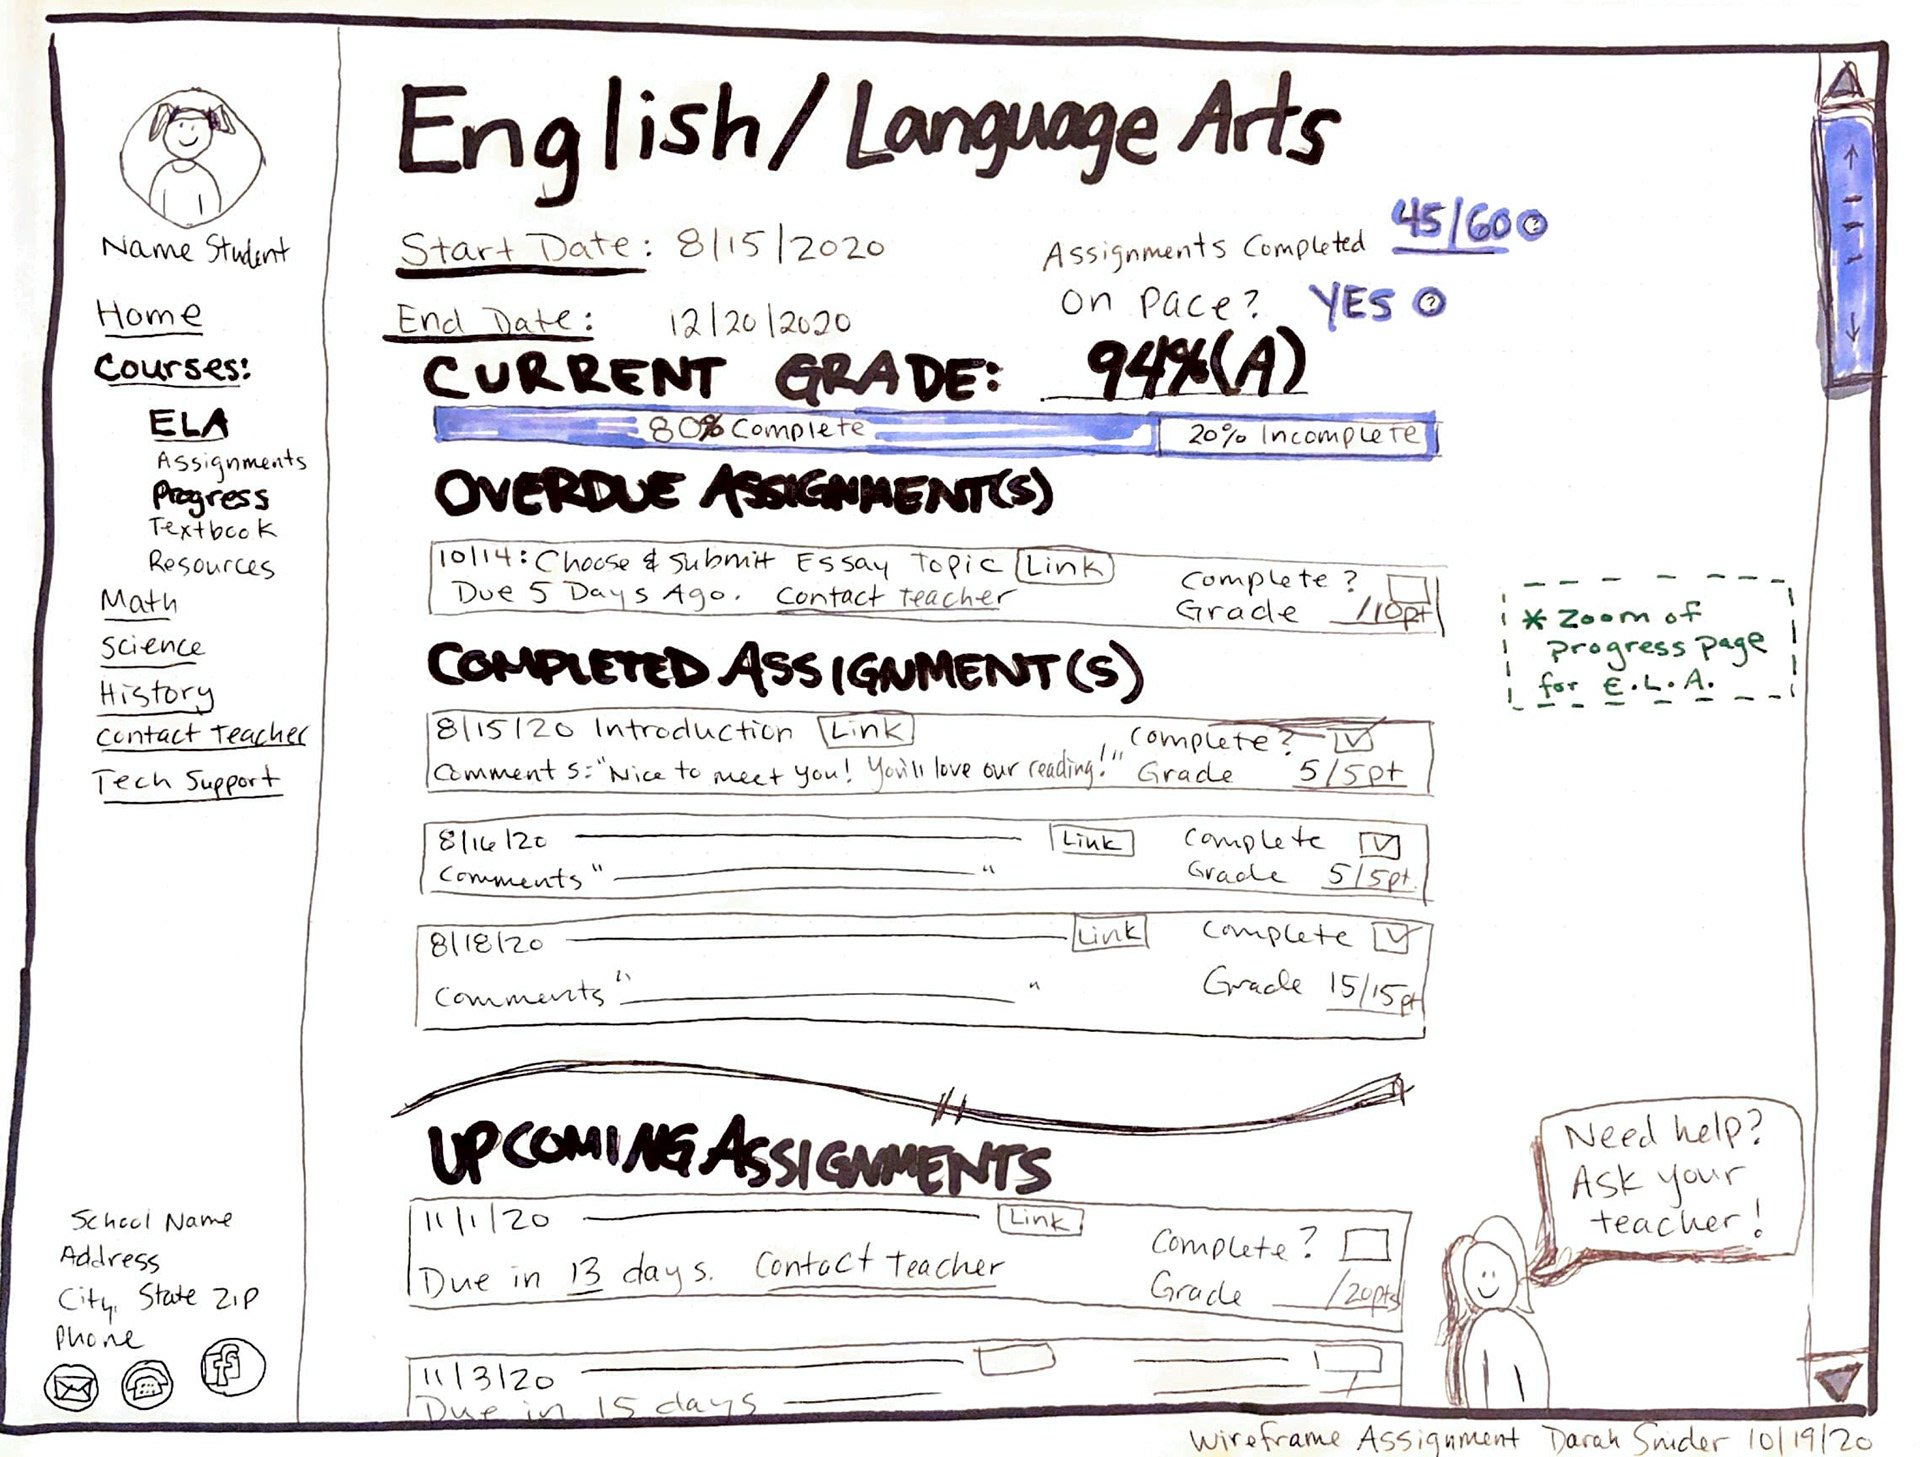 English/Language Arts
Name Student
Home
Courses:
ELA
Assignments
Progress
Textbook
Resources
Math
Science
History
Contact Teacher
Tech Support
School Name
Address
City, State ZIP
Phone
f
Start Date: 8/15/2020
End Date: 12/20/2020
Assignments Completed 45/60 ?
On Pace? YES ?
CURRENT GRADE: 94%(A)
80% Complete
20% Incomplete
OVERDUE ASSIGNMENT(S)
10/14: Choose & Submit Essay Topic Link
Due 5 Days Ago. Contact teacher
Complete?
Grade /10pt
COMPLETED ASSIGNMENT(S)
8/15/20 Introduction Link
Comments: "Nice to meet you! You'll love our reading!"
Complete?
Grade 5/5pt
8/16/20 Link
Comments " "
Complete
Grade 5/5pt.
8/18/20 Link
Comments " "
Complete
Grade 15/15pt
UPCOMING ASSIGNMENTS
11/1/20 Link
Due in 13 days. Contact Teacher
Complete?
Grade /20pts
11/3/20
Due in 15 days
* Zoom of
progress page
for E.L.A.
Need help?
Ask your
teacher!
Wireframe Assignment Darah Snider 10/19/20